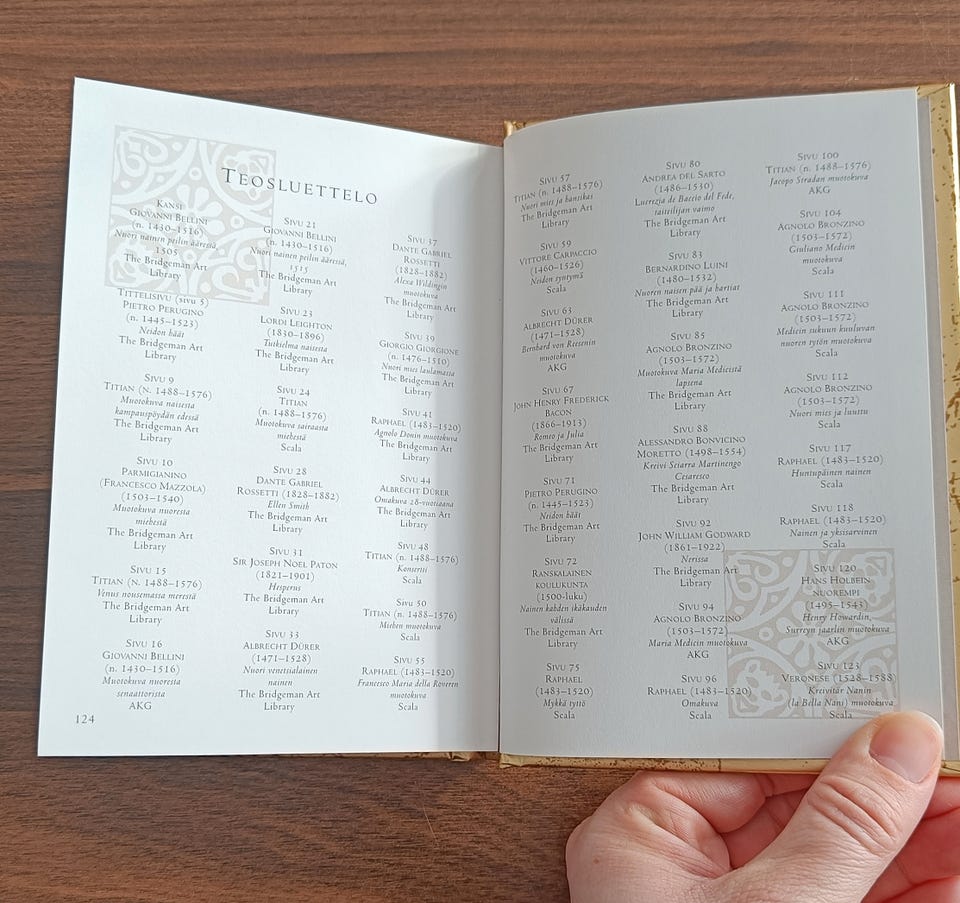 TEOSLUETTELO
KANSI
GIOVANNI BELLINI
(n. 1430–1516)
Nuori nainen peilin ääressä,
1505
The Bridgeman Art
Library
TITTELISIVU (sivu 5)
PIETRO PERUGINO
(n. 1445–1523)
Neidon häät
The Bridgeman Art
Library
SIVU 9
TITIAN (N. 1488–1576)
Muotokuva naisesta
kampauspöydän edessä
The Bridgeman Art
Library
SIVU 10
PARMIGIANINO
(FRANCESCO MAZZOLA)
(1503–1540)
Muotokuva nuoresta
miehestä
The Bridgeman Art
Library
SIVU 15
TITIAN (N. 1488–1576)
Venus nousemassa merestä
The Bridgeman Art
Library
SIVU 16
GIOVANNI BELLINI
(n. 1430–1516)
Muotokuva nuoresta
senaattorista
AKG
124
SIVU 21
GIOVANNI BELLINI
(n. 1430–1516)
Nuori nainen peilin ääressä,
1515
The Bridgeman Art
Library
SIVU 23
LORDI LEIGHTON
(1830–1896)
Tutkielma naisesta
The Bridgeman Art
Library
SIVU 24
TITIAN
(n. 1488–1576)
Muotokuva sairaasta
miehestä
Scala
SIVU 28
DANTE GABRIEL
ROSSETTI (1828–1882)
Ellen Smith
The Bridgeman Art
Library
SIVU 31
SIR JOSEPH NOEL PATON
(1821–1901)
Hesperus
The Bridgeman Art
Library
SIVU 33
ALBRECHT DÜRER
(1471–1528)
Nuori venetsialainen
nainen
The Bridgeman Art
Library
SIVU 37
DANTE GABRIEL
ROSSETTI
(1828–1882)
Alexa Wildingin
muotokuva
The Bridgeman Art
Library
SIVU 39
GIORGIO GIORGIONE
(n. 1476–1510)
Nuori mies laulamassa
The Bridgeman Art
Library
SIVU 41
RAPHAEL (1483–1520)
Agnolo Donin muotokuva
The Bridgeman Art
Library
SIVU 44
ALBRECHT DÜRER
Omakuva 28-vuotiaana
The Bridgeman Art
Library
SIVU 48
TITIAN (n. 1488–1576)
Konsertti
Scala
SIVU 50
TITIAN (n. 1488–1576)
Miehen muotokuva
Scala
SIVU 55
RAPHAEL (1483–1520)
Francesco Maria della Roveren
muotokuva
Scala
SIVU 57
TITIAN (n. 1488–1576)
Nuori mies ja hansikas
The Bridgeman Art
Library
SIVU 59
VITTORE CARPACCIO
(1460–1526)
Neidon syntymä
Scala
SIVU 63
ALBRECHT DÜRER
(1471–1528)
Bernhard von Reesenin
muotokuva
AKG
SIVU 67
JOHN HENRY FREDERICK
BACON
(1866–1913)
Romeo ja Julia
The Bridgeman Art
Library
SIVU 71
PIETRO PERUGINO
(n. 1445–1523)
Neidon häät
The Bridgeman Art
Library
SIVU 72
RANSKALAINEN
KOULUKUNTA
(1500-luku)
Nainen kahden ikäkauden
välissä
The Bridgeman Art
Library
SIVU 75
RAPHAEL
(1483–1520)
Mykkä tyttö
Scala
SIVU 80
ANDREA DEL SARTO
(1486–1530)
Lucrezia de Baccio del Fede,
taiteilijan vaimo
The Bridgeman Art
Library
SIVU 83
BERNARDINO LUINI
(1480–1532)
Nuoren naisen pää ja hartiat
The Bridgeman Art
Library
SIVU 85
AGNOLO BRONZINO
(1503–1572)
Muotokuva Maria Medicistä
lapsena
The Bridgeman Art
Library
SIVU 88
ALESSANDRO BONVICINO
MORETTO (1498–1554)
Kreivi Sciarra Martinengo
Cesaresco
The Bridgeman Art
Library
SIVU 92
JOHN WILLIAM GODWARD
(1861–1922)
Nerissa
The Bridgeman Art
Library
SIVU 94
AGNOLO BRONZINO
(1503–1572)
Maria Medicin muotokuva
AKG
SIVU 96
RAPHAEL (1483–1520)
Omakuva
Scala
SIVU 100
TITIAN (n. 1488–1576)
Jacopo Stradan muotokuva
AKG
SIVU 104
AGNOLO BRONZINO
(1503–1572)
Giuliano Medicin
muotokuva
Scala
SIVU 111
AGNOLO BRONZINO
(1503–1572)
Medicin sukuun kuuluvan
nuoren tytön muotokuva
Scala
SIVU 112
AGNOLO BRONZINO
(1503–1572)
Nuori mies ja luuttu
Scala
SIVU 117
RAPHAEL (1483–1520)
Huntupäinen nainen
Scala
SIVU 118
RAPHAEL (1483–1520)
Nainen ja yksisarvinen
Scala
SIVU 120
HANS HOLBEIN
NUOREMPI
(1495–1543)
Henry Howardin,
Surreyn jaarlin muotokuva
AKG
SIVU 123
VERONESE (1528–1588)
Kreivitär Nanin
(la Bella Nani) muotokuva
Scala